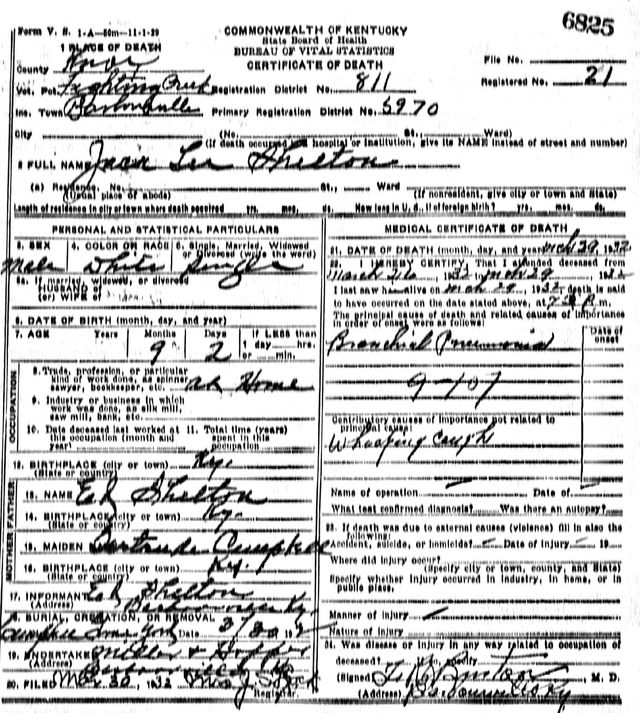 6825
Form V. S. 1-A-50m-11-1-29
COMMONWEALTH OF KENTUCKY
State Board of Health
BUREAU OF VITAL STATISTICS
CERTIFICATE OF DEATH
1 PLACE OF DEATH
County Knox
File No.
Vot. Pct. Fighting Creek Registration District No. 811
Registered No. 21
Inc. Town Barbourville Primary Registration District No. 5970
City (No. St., Ward)
(If death occurred in a hospital or institution, give its NAME instead of street and number)
2 FULL NAME Lee Shelton
(a) Residence. No. St., Ward
(Usual place of abode) (If nonresident, give city or town and State)
Length of residence in city or town where death occurred yrs. mos. ds. How long in U. S., if of foreign birth? yrs. mos. ds.
PERSONAL AND STATISTICAL PARTICULARS
3. SEX 4. COLOR OR RACE 5. Single, Married, Widowed
or Divorced (write the word)
Male White Single
5a. If married, widowed, or divorced
HUSBAND of
(or) WIFE of
6. DATE OF BIRTH (month, day, and year)
7. AGE Years Months Days If LESS than
1 day hrs.
or min.
9 2
OCCUPATION
8. Trade, profession, or particular
kind of work done, as spinner,
sawyer, bookkeeper, etc. at Home
9. Industry or business in which
work was done, as silk mill,
saw mill, bank, etc.
10. Date deceased last worked at 11. Total time (years)
this occupation (month and spent in this
year) occupation
12. BIRTHPLACE (city or town) Ky.
(State or country)
MOTHER FATHER
13. NAME Ed Shelton
14. BIRTHPLACE (city or town) Ky.
(State or country)
15. MAIDEN Gertrude Campbell
16. BIRTHPLACE (city or town) Ky.
(State or country)
17. INFORMANT Ed Shelton
(Address) Ky.
18. BURIAL, CREMATION, OR REMOVAL
Date 3/30
19. UNDERTAKER
(Address) Barbourville Ky
20. FILED Mar 30, 1932
Registrar.
MEDICAL CERTIFICATE OF DEATH
21. DATE OF DEATH (month, day, and year) Mch 29, 1932
22. I HEREBY CERTIFY, That I attended deceased from
March 1932, Mch 29, 1932
I last saw him alive on Mch 29, 1932, death is said
to have occurred on the date stated above, at P.m.
The principal cause of death and related causes of importance
in order of onset were as follows:
Date of
onset
Bronchial Pneumonia
9-107
Contributory causes of importance not related to
principal cause:
Whooping Cough
Name of operation Date of
What test confirmed diagnosis? Was there an autopsy?
23. If death was due to external causes (violence) fill in also the
following:
Accident, suicide, or homicide? Date of injury 19
Where did injury occur?
(Specify city or town, county, and State)
Specify whether injury occurred in industry, in home, or in
public place.
Manner of injury
Nature of injury
24. Was disease or injury in any way related to occupation of
deceased? If so, specify
(Signed) M. D.
(Address) Barbourville Ky